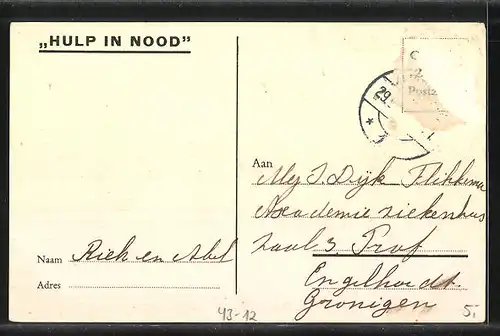 „HULP IN NOOD”
Postz
29.
Aan
Mej J. Dijk Flikkema
Academie ziekenhus
zaal 3. Prof
Engelhardt.
Gronigen
Naam Riek en Abel
Adres
43-12
5.